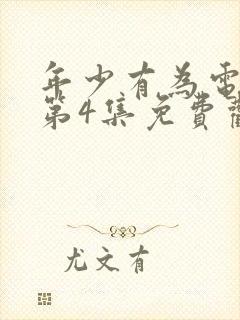 年少有為電
第4集免費
尤文有